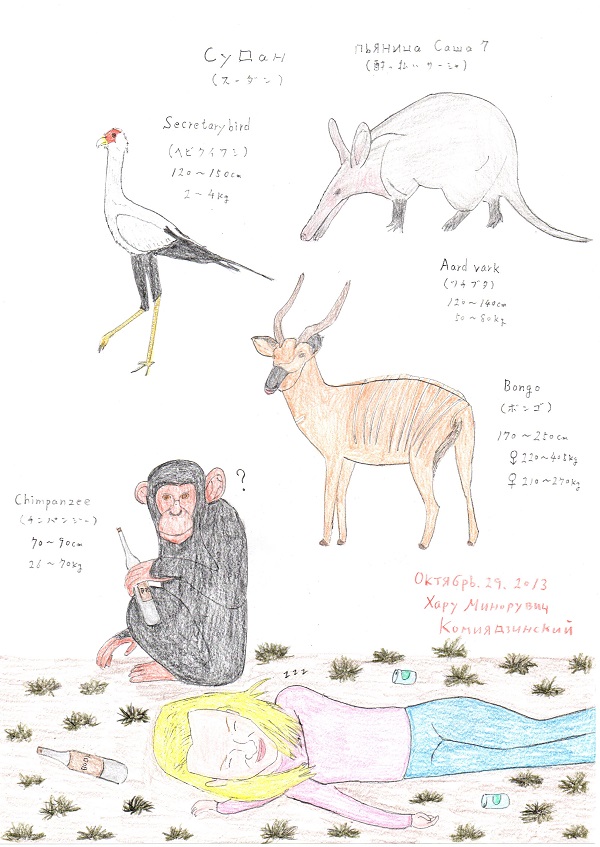 Судан
(スーダン)
пьяница Саша 7
(酔っ払いサーシャ)
Secretarybird
(ヘビクイワシ)
120〜150cm
2〜4kg
Aard vark
(ツチブタ)
120〜140cm
50〜80kg
Bongo
(ボンゴ)
170〜250cm
♂220〜405kg
♀210〜270kg
?
Chimpanzee
(チンパンジー)
70〜90cm
26〜70kg
Октябрь. 29. 2013
Хару Минорувиц
Комиядзинский
zzz